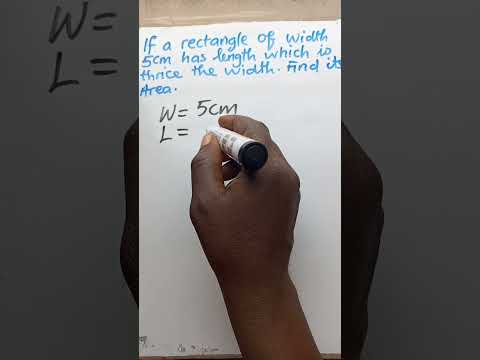 If a rectangle of width
5cm has length which is
thrice the width. Find its
Area.
W= 5cm
L=